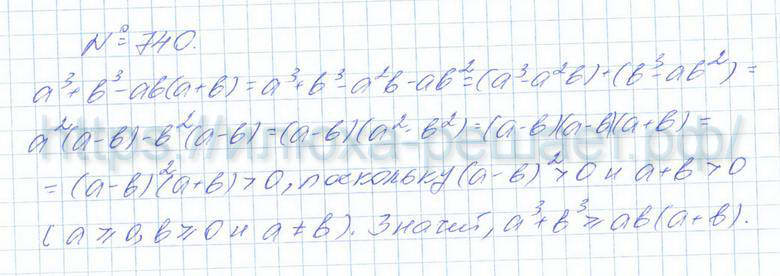 № 740.
a³+b³-ab(a+b)=a³+b³-a²b-ab²=(a³-a²b)+(b³-ab²)=
a²(a-b)-b²(a-b)=(a-b)(a²-b²)=(a-b)(a-b)(a+b)=
=(a-b)²(a+b)>0, поскольку (a-b)²>0 и a+b>0
(a⩾0, b⩾0 и a≠b). Значит, a³+b³⩾ab(a+b).
https://илюха-решает.рф/